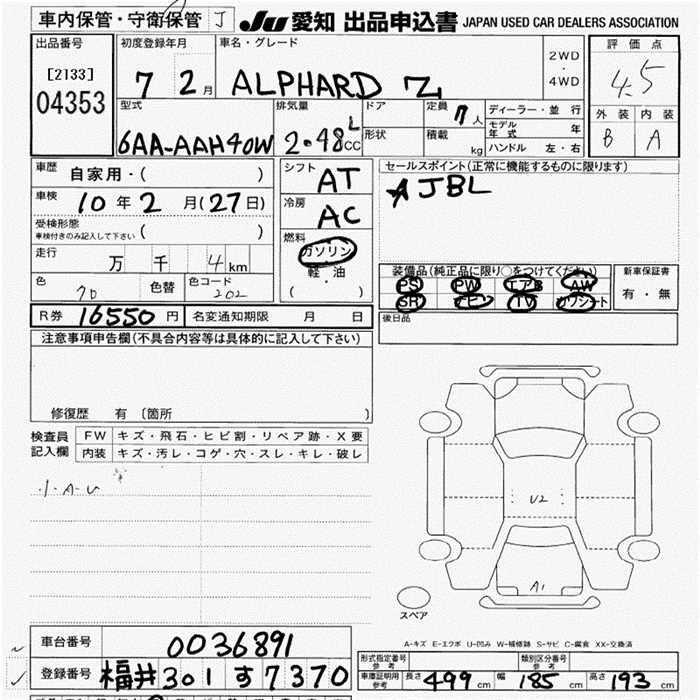 車内保管・守衛保管 J JU 愛知 出品申込書 JAPAN USED CAR DEALERS ASSOCIATION
出品番号 初度登録年月 車名・グレード 評価点
[2133] 2WD
・
04353 7 2月 ALPHARD Z 4WD 4.5
型式 排気量 ドア 定員 7人 ディーラー・並行 外装 内装
モデル年式 年
6AA-AAH40W 2.48L CC 形状 積載 kg ハンドル 左・右 B A
車歴 自家用・( ) シフト AT セールスポイント(正常に機能するものに限ります)
車検 10年2月(27日) 冷房 AC ★JBL
受検形態
車検付きのみ記入して下さい ( ) 燃料
走行 万 千 4km ガソリン 装備品(純正品に限り○をつけてください) 新車保証書
軽・油 PS PW エアB AW 有・無
色 色替 色コード 202 ( ・ ) SR ナビ TV カワシート
R券 16550円 名変通知期限 月 日 後日品
注意事項申告欄(不具合内容等は具体的に記入して下さい)
修復歴 有 〔箇所 〕
検査員 FW キズ・飛石・ヒビ割・リペア跡・X要
記入欄 内装 キズ・汚レ・コゲ・穴・スレ・キレ・破レ
U2
A1
スペア
A-キズ E-エクボ U-凹み W-補修跡 S-サビ C-腐食 XX-交換済
車台番号 0036891
形式指定番号 参考 類別区分番号 参考
登録番号 福井 301 す 7370 車庫証明用 参考 長さ 499cm 幅 185cm 高さ 193cm